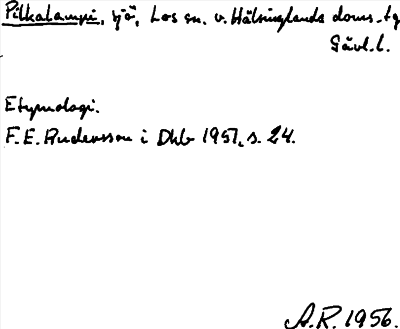 Pilkalampi, sjö, Los sn. v. Hälsinglands doms. tg
Gävl. l.
Etymologi.
F. E. Andersson i Dhb 1951, s. 24.
A.R. 1956.